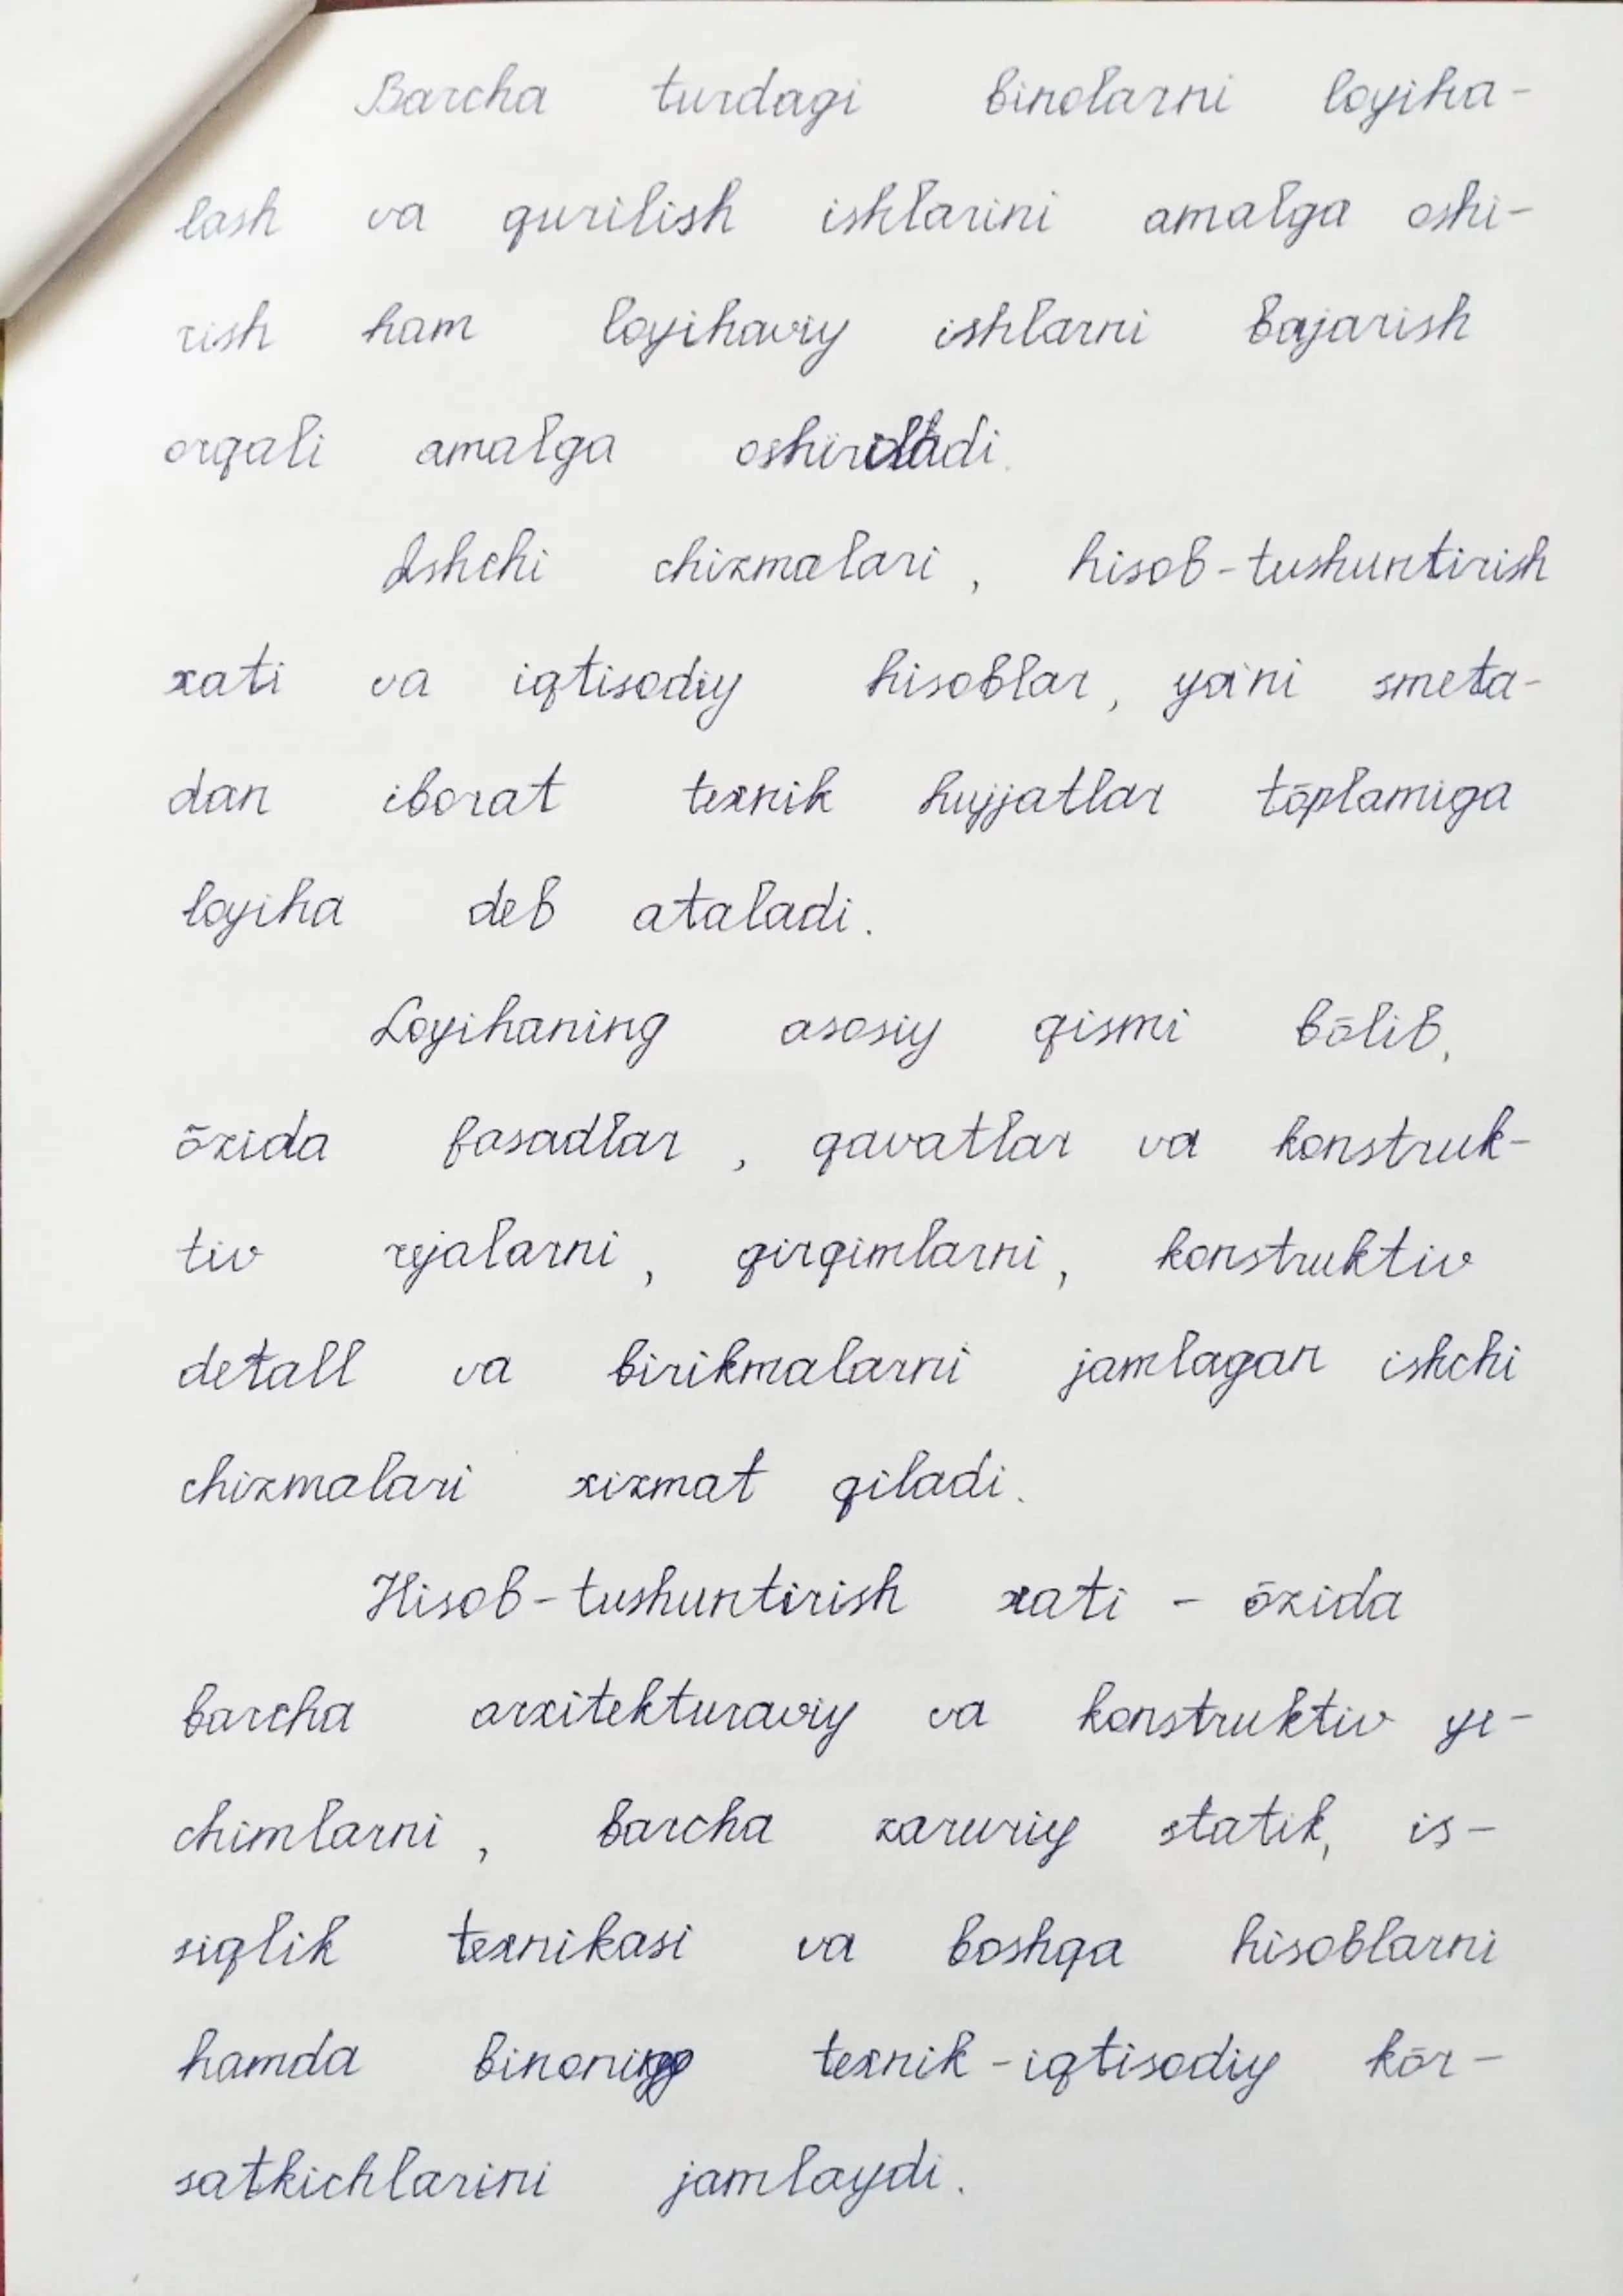 Barcha turdagi binolarni loyiha-
lash va qurilish ishlarini amalga oshi-
rish ham loyihaviy ishlarni bajarish
orqali amalga oshiriladi.
Ishchi chizmalari, hisob-tushuntirish
xati va iqtisodiy hisoblar, ya'ni smeta-
dan iborat texnik hujjatlar tōplamiga
loyiha deb ataladi.
Loyihaning asosiy qismi bōlib,
ōzida fasadlar, qavatlar va konstruk-
tiv rejalarni, qirqimlarni, konstruktiv
detall va birikmalarni jamlagan ishchi
chizmalari xizmat qiladi.
Hisob-tushuntirish xati - ōzida
barcha arxitekturaviy va konstruktiv ye-
chimlarni, barcha zaruriy statik, is-
siqlik texnikasi va boshqa hisoblarni
hamda binoning texnik-iqtisodiy kōr-
satkichlarini jamlaydi.